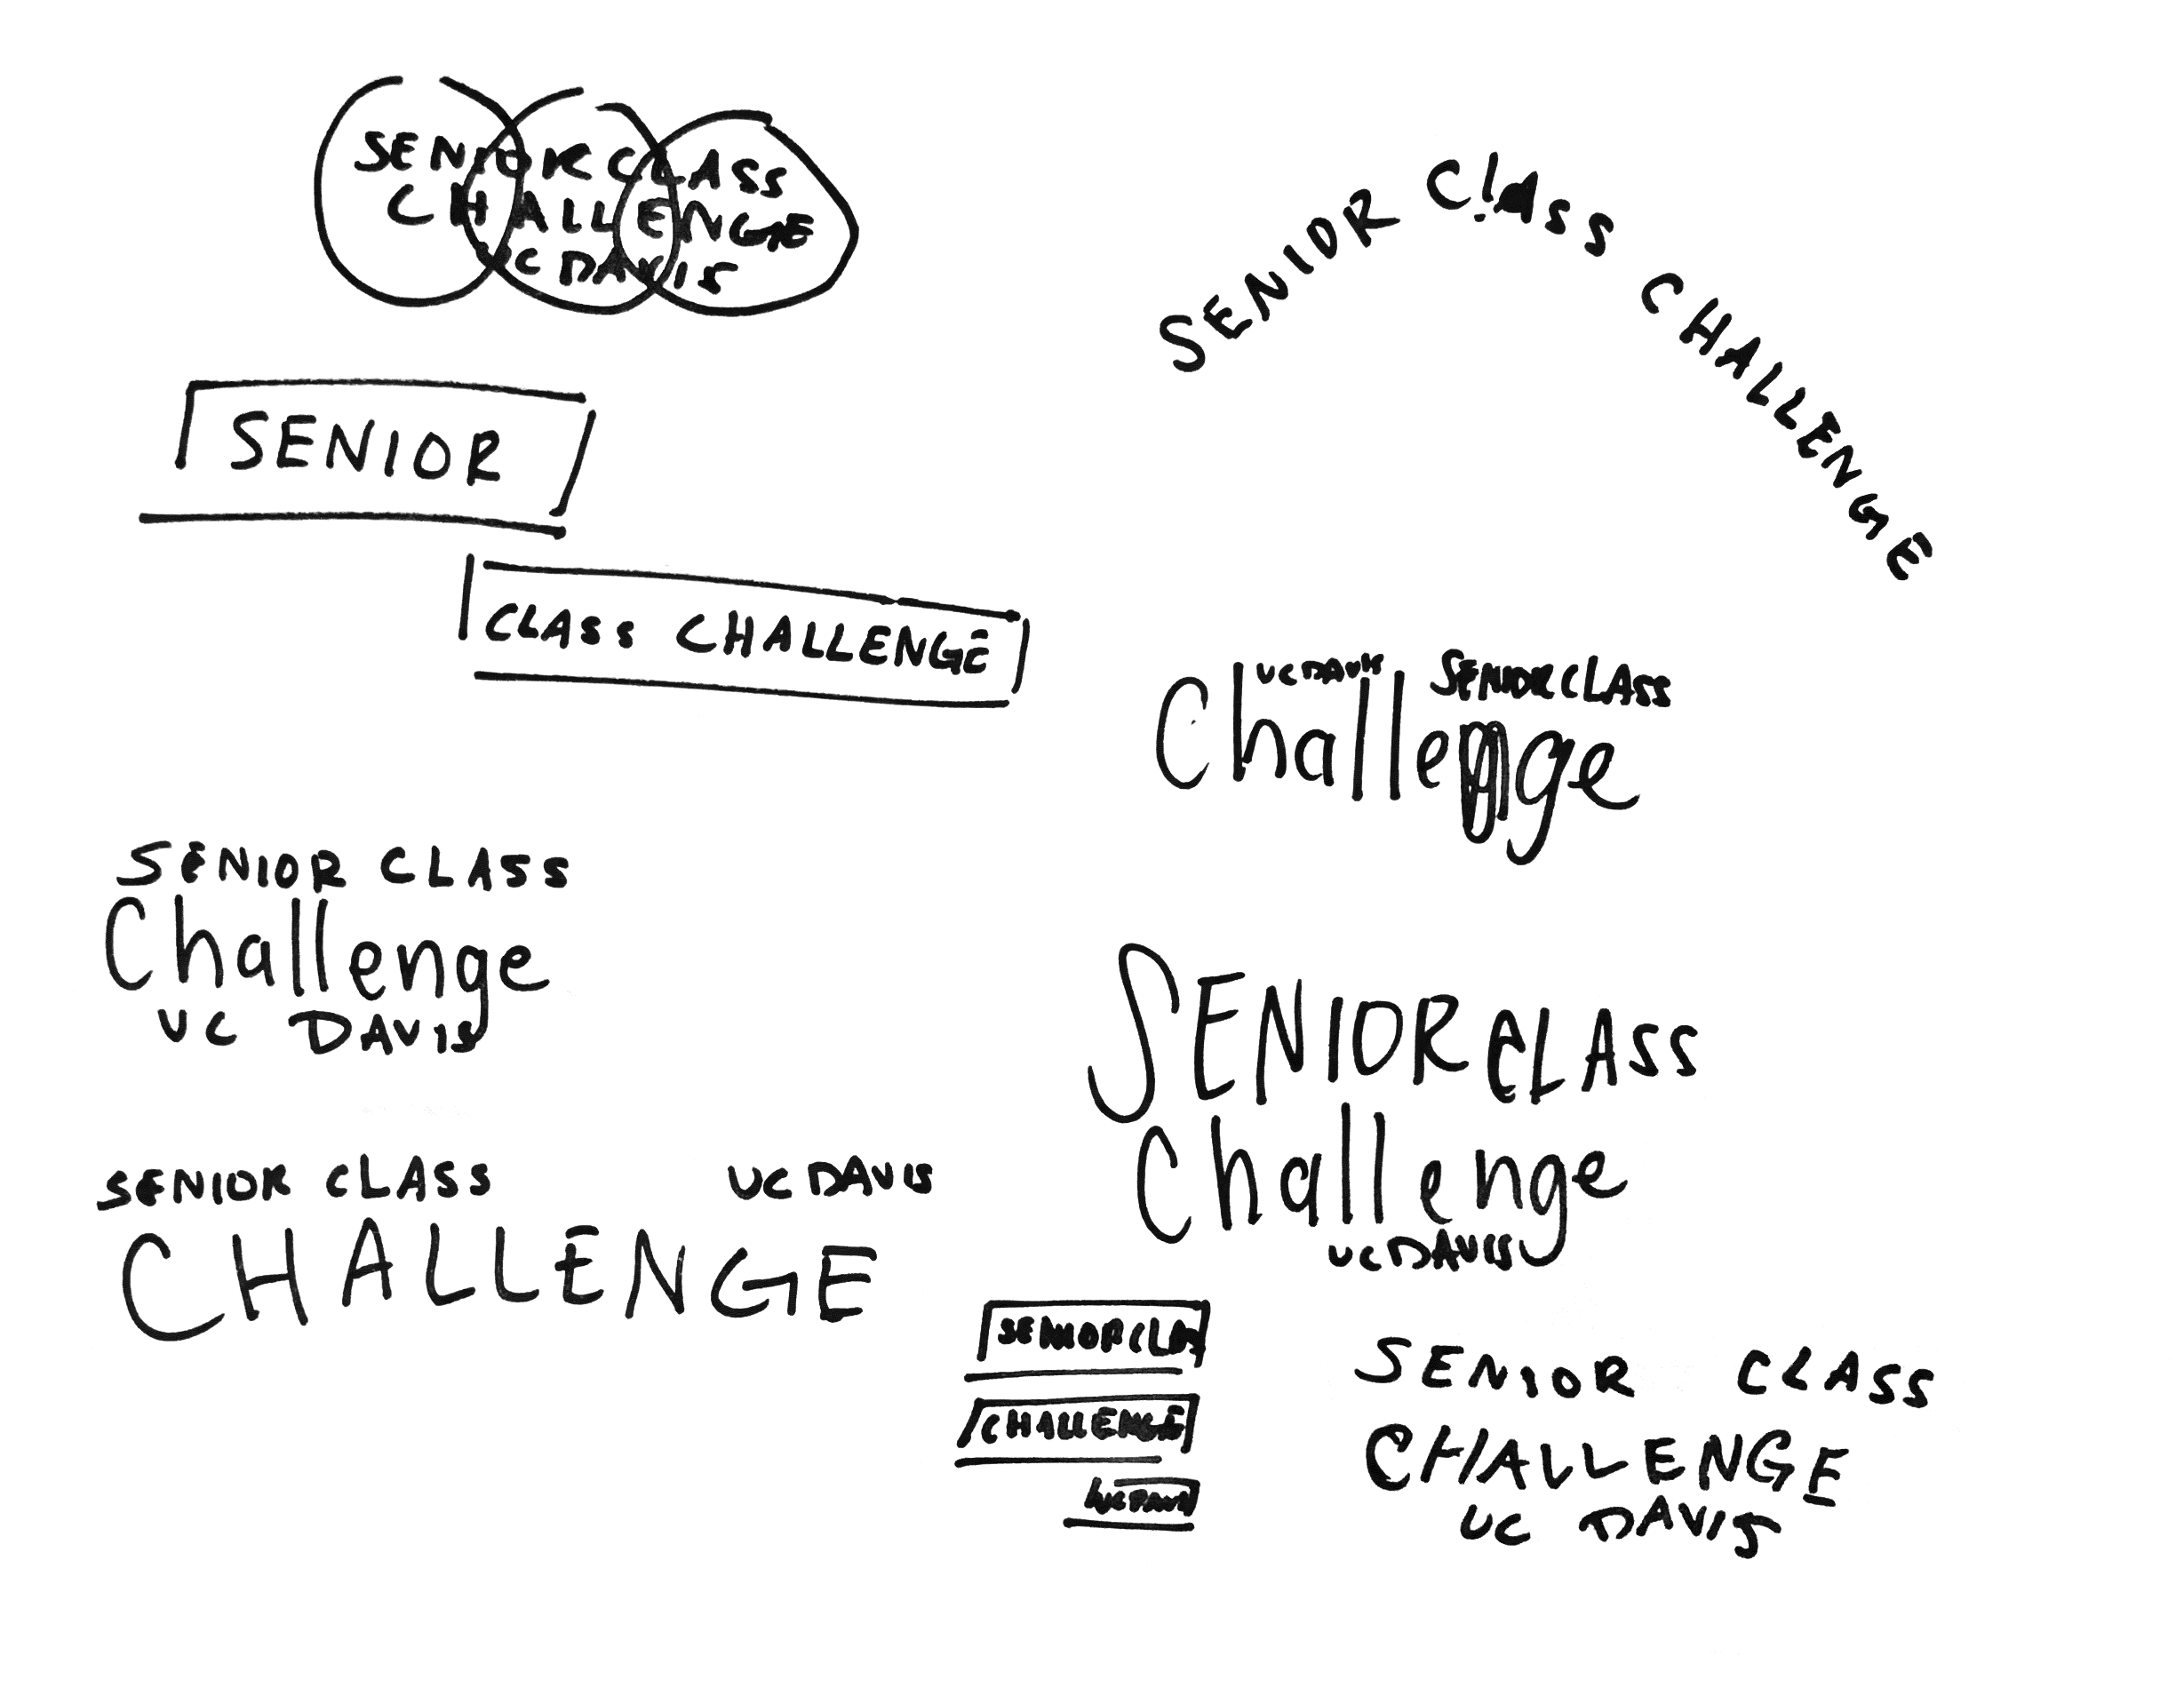 SENIOR CLASS
CHALLENGE
UC DAVIS
SENIOR Class CHALLENGE
SENIOR
CLASS CHALLENGE
UC DAVIS SENIOR CLASS
Challenge
SENIOR CLASS
Challenge
UC DAVIS
SENIOR CLASS
Challenge
UC DAVIS
SENIOR CLASS UC DAVIS
CHALLENGE
SENIOR CLAS
CHALLENGE
SENIOR CLASS
CHALLENGE
UC DAVIS